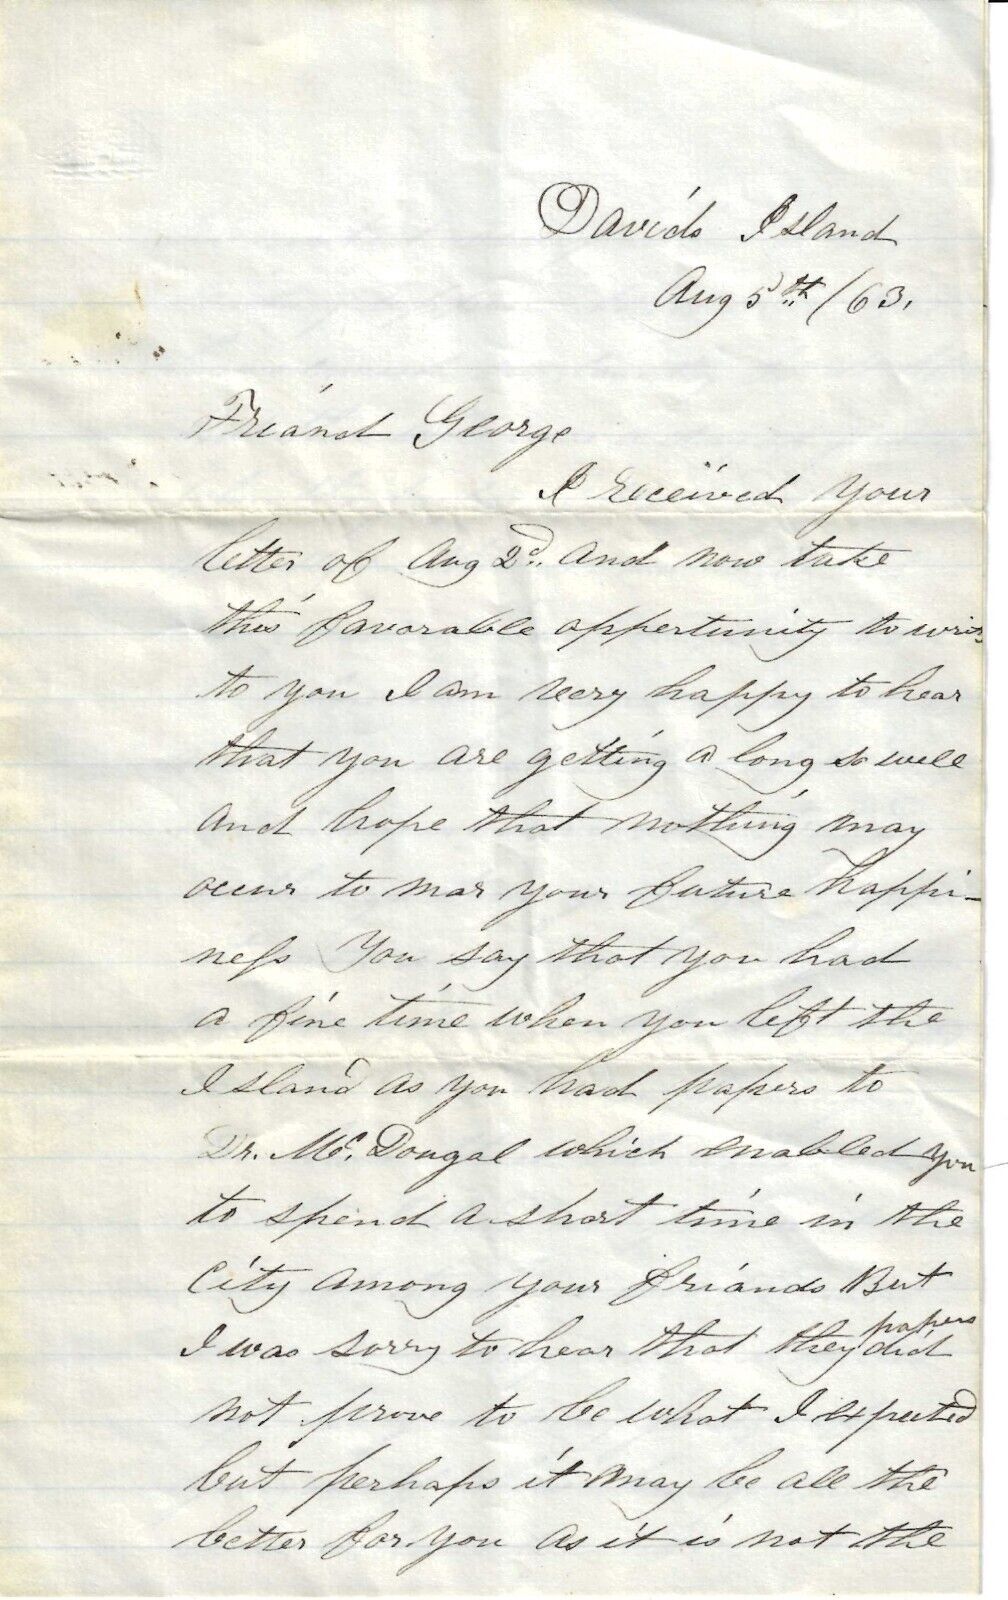 David's Island
Aug 5th /63.
Friand George
I received your
letter of Aug 2d. and now take
this favorable oppertunity to write
to you I am very happy to hear
that you are getting a long so well
and hope that nothing may
occur to mar your future happi-
ness You say that you had
a fine time when you left the
Island as you had papers to
Dr. Mc. Dougal which enabled you
to spend a short time in the
City among your friands But
papers
I was sorry to hear that they did
not prove to be what I expected
but perhaps it may be all the
better for you as it is not the